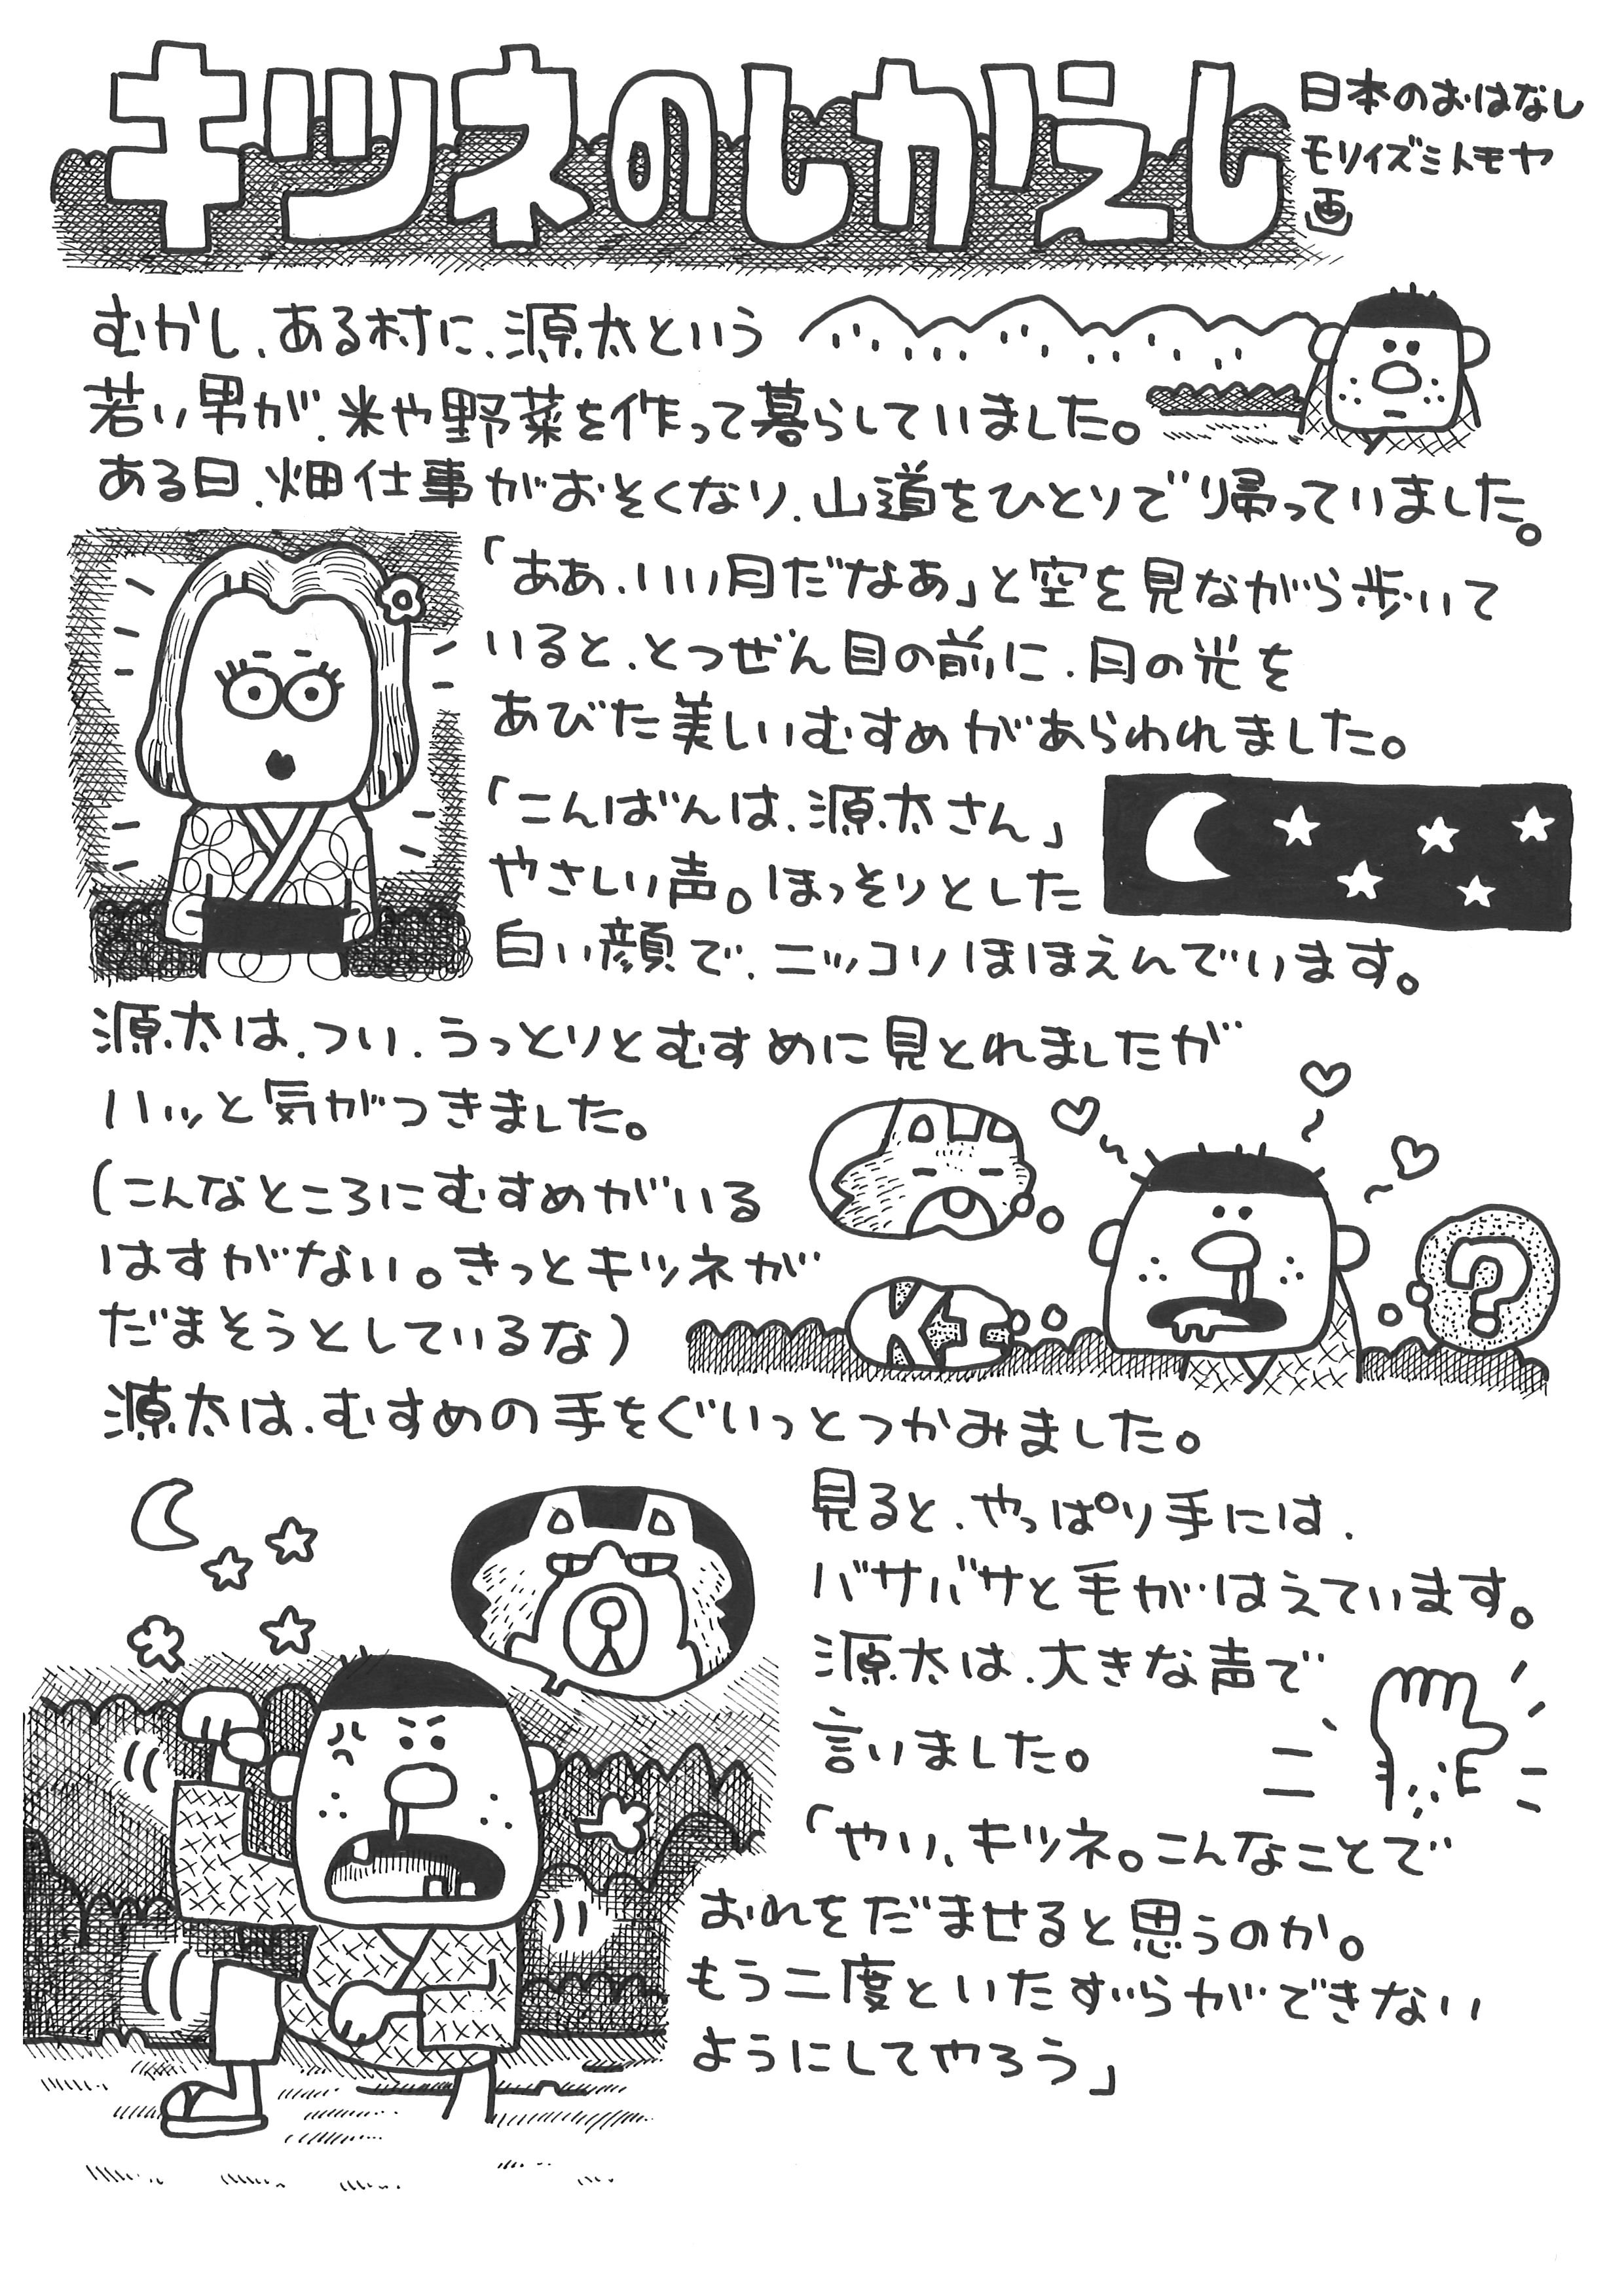 キツネのしかえし
日本のおはなし
モリイズミトモヤ
画
むかし、ある村に、源太という
若い男が、米や野菜を作って暮らしていました。
ある日、畑仕事がおそくなり、山道をひとりで帰っていました。
「ああ、いい月だなあ」と空を見ながら歩いて
いると、とつぜん目の前に、月の光を
あびた美しいむすめがあらわれました。
「こんばんは、源太さん」
やさしい声。ほっそりとした
白い顔で、ニッコリほほえんでいます。
源太は、つい、うっとりとむすめに見とれましたが
ハッと気がつきました。
(こんなところにむすめがいる
はずがない。きっとキツネが
だまそうとしているな)
?
源太は、むすめの手をぐいっとつかみました。
見ると、やっぱり手には、
バサバサと毛がはえています。
源太は、大きな声で
言いました。
「やい、キツネ。こんなことで
おれをだませると思うのか。
もう二度といたずらができない
ようにしてやろう」